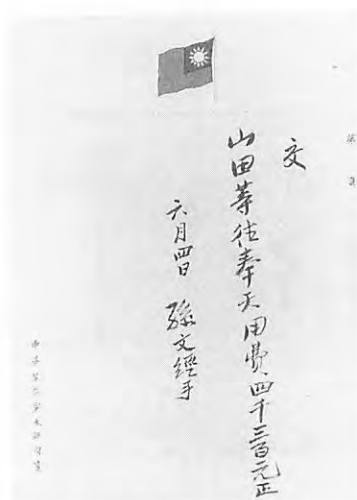 交
山田等往奉天用費四千三百元正
六月四日 孫文經手